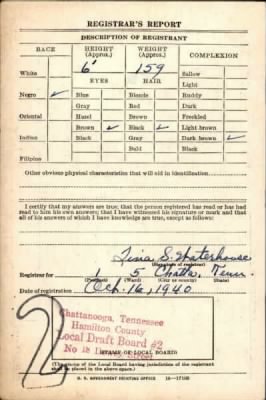 REGISTRAR'S REPORT
DESCRIPTION OF REGISTRANT
RACE HEIGHT (Approx.) WEIGHT (Approx.) COMPLEXION
White 6' 159 Sallow
EYES HAIR Light
Negro ✓ Blue Blonde Ruddy
Gray Red Dark
Oriental Hazel Brown Freckled
Brown ✓ Black ✓ Light brown
Indian Black Gray Dark brown ✓
Bald Black
Filipino
Other obvious physical characteristics that will aid in identification
I certify that my answers are true; that the person registered has read or has had
read to him his own answers; that I have witnessed his signature or mark and that
all of his answers of which I have knowledge are true, except as follows:
S. Waterhouse
(Signature of registrar)
Registrar for 5 Chatta. Tenn.
(Precinct) (Ward) (City or county) (State)
Date of registration Oct. 16, 1940
2
Chattanooga, Tennessee
Hamilton County
Local Draft Board #2
No Street
(STAMP OF LOCAL BOARD)
(The stamp of the Local Board having jurisdiction of the registrant
shall be placed in the above space.)
U. S. GOVERNMENT PRINTING OFFICE 16—17105